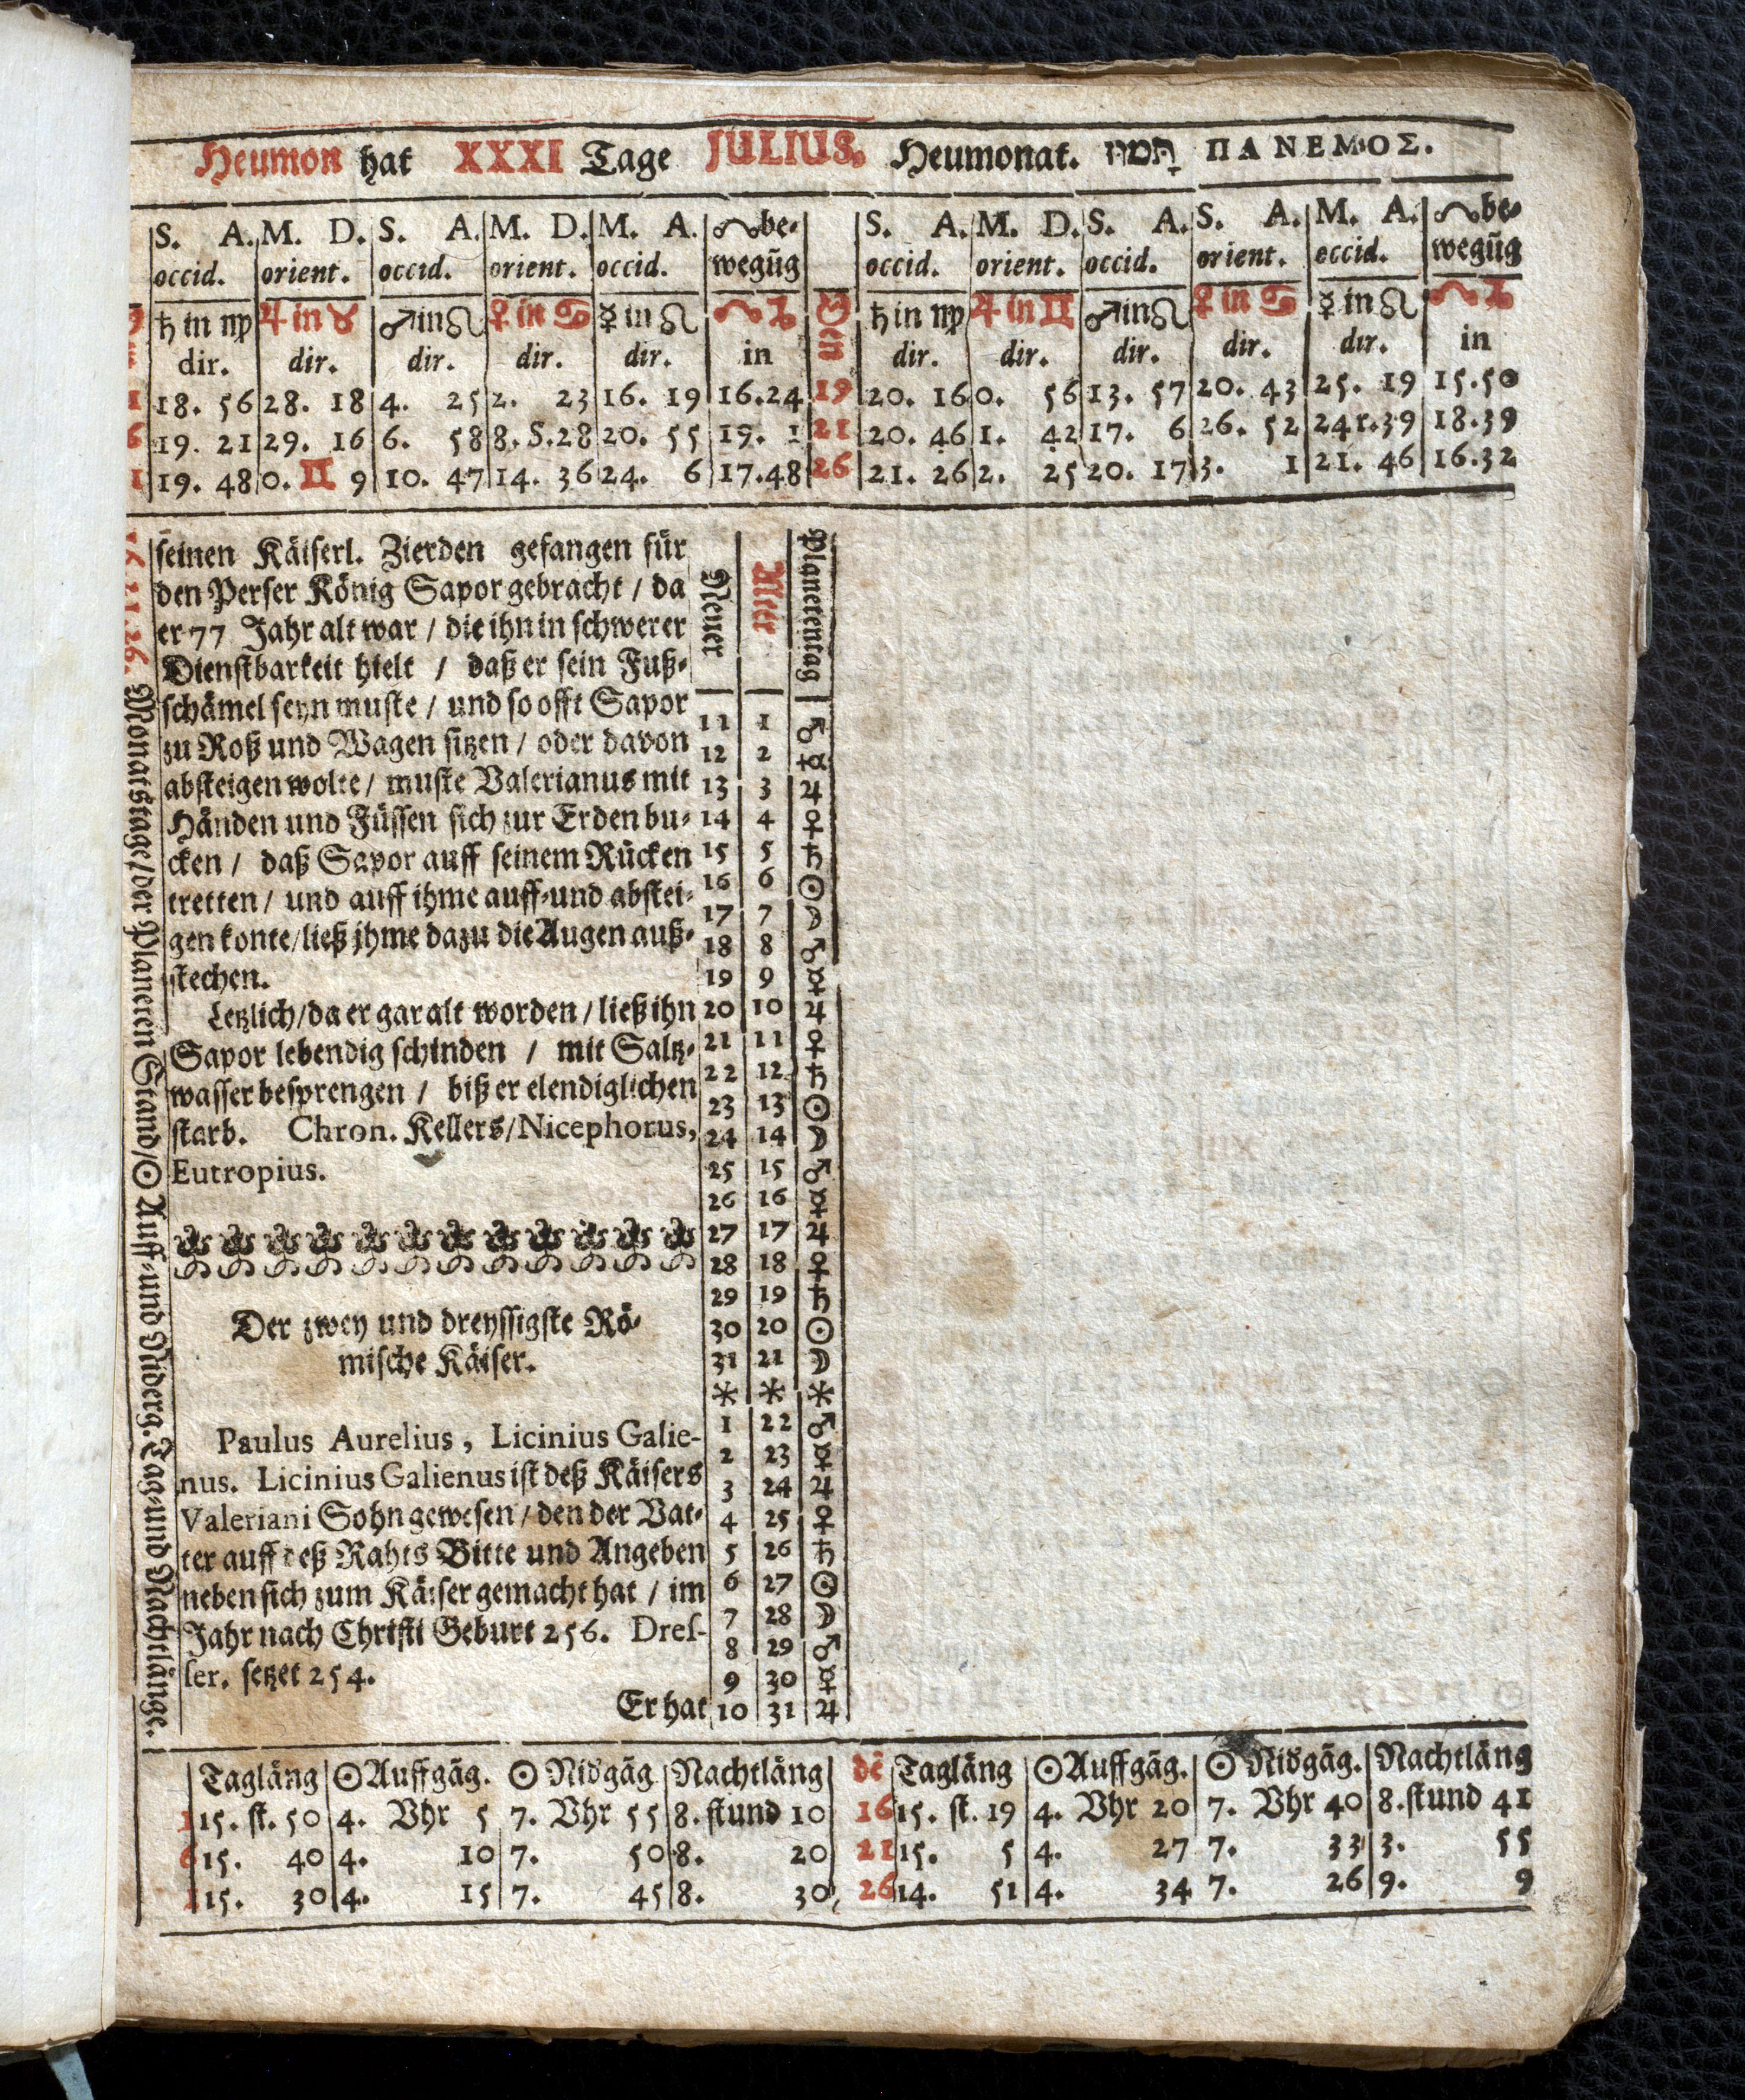 Heumon hat XXXI Tage JULIUS. Heumonat. תמוז ΠΑΝΕΜΟΣ.
S. A. M. D. S. A. M. D. M. A. ☊be- S. A. M. D. S. A. S. A. M. A. ☊be-
occid. orient. occid. orient. occid. wegūg occid. orient. occid. orient. occid. wegūg
♄ in ♍ ♃ in ♉ ♂ in ♌ ♀ in ♋ ☿ in ♌ ☊ ♑ ♄ in ♍ ♃ in ♊ ♂ in ♌ ♀ in ♋ ☿ in ♌ ☊ ♑
dir. dir. dir. dir. dir. in dir. dir. dir. dir. dir. in
1 18. 56 28. 18 4. 25 2. 23 16. 19 16.24 19 20. 16 0. 56 13. 57 20. 43 25. 19 15.50
6 19. 21 29. 16 6. 58 8. S.28 20. 55 19. 1 21 20. 46 1. 42 17. 6 26. 52 24r.39 18.39
1 19. 48 0. ♊ 9 10. 47 14. 36 24. 6 17.48 26 21. 26 2. 25 20. 17 3. 1 21. 46 16.32
Monatstage/der Planeten Stand/☉ Auff-und Niderg. Tag-und Nachtlänge.
seinen Käiserl. Zierden gefangen für
den Perser König Sapor gebracht / da
er 77 Jahr alt war / die ihn in schwerer
Dienstbarkeit hielt / daß er sein Fuß-
schämel seyn muste / und so offt Sapor
zu Roß und Wagen sitzen / oder davon
absteigen wolte / muste Valerianus mit
Händen und Füssen sich zur Erden bu-
cken / daß Sapor auff seinem Rücken
tretten / und auff ihme auff-und abstei-
gen konte/ließ jhme dazu die Augen auß-
stechen.
Letzlich/da er gar alt worden / ließ ihn
Sapor lebendig schinden / mit Saltz-
wasser besprengen / biß er elendiglichen
starb. Chron. Kellers/Nicephorus,
Eutropius.
Der zwey und dreyssigste Rö-
mische Käiser.
Paulus Aurelius, Licinius Galie-
nus. Licinius Galienus ist deß Käisers
Valeriani Sohn gewesen / den der Vat-
ter auff deß Rahts Bitte und Angeben
neben sich zum Käiser gemacht hat / im
Jahr nach Christi Geburt 256. Dres-
ser. setzet 254.
Er hat
Neuer Alter Planetentag
11 1 ♂
12 2 ☿
13 3 ♃
14 4 ♀
15 5 ♄
16 6 ☉
17 7 ☽
18 8 ♂
19 9 ☿
20 10 ♃
21 11 ♀
22 12 ♄
23 13 ☉
24 14 ☽
25 15 ♂
26 16 ☿
27 17 ♃
28 18 ♀
29 19 ♄
30 20 ☉
31 21 ☽
* * *
1 22 ♂
2 23 ☿
3 24 ♃
4 25 ♀
5 26 ♄
6 27 ☉
7 28 ☽
8 29 ♂
9 30 ☿
10 31 ♃
Tagläng ☉Auffgāg. ☉ Nidgāg Nachtläng dē Tagläng ☉Auffgāg. ☉ Nidgāg. Nachtläng
1 15. st. 50 4. Vhr 5 7. Vhr 55 8. stund 10 16 15. st. 19 4. Vhr 20 7. Vhr 40 8. stund 41
6 15. 40 4. 10 7. 50 8. 20 21 15. 5 4. 27 7. 33 3. 55
1 15. 30 4. 15 7. 45 8. 30 26 14. 51 4. 34 7. 26 9. 9